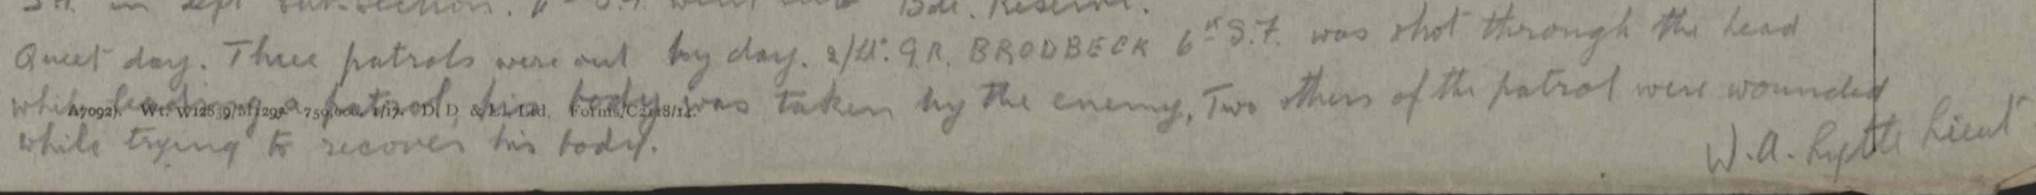 in left sub-section. went into Bde. Reserve.
Quiet day. Three patrols were out by day. 2/Lt. G.R. BRODBECK 6th S.F. was shot through the head
while leading a patrol, his body was taken by the enemy, Two others of the patrol were wounded
A7092). Wt. W12839/M1293. 750,000. 1/17. D. D & L., Ltd. Forms/C2118/14.
while trying to recover his body.
W.A. Lyttle Lieut